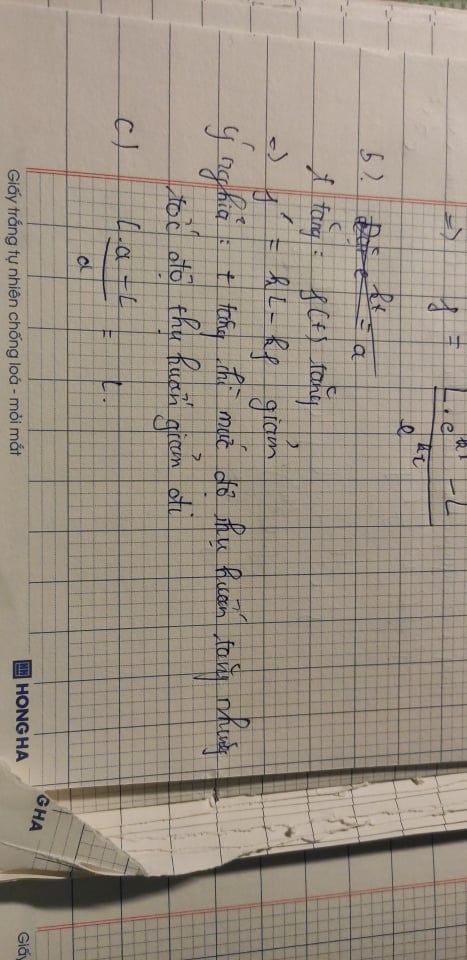 => f = (L.e^kt - L) / e^kt
b). Đặt e^kt = a
t tăng : f(t) tăng
=> f' = kL - kf giảm
Ý nghĩa : t tăng thì mức độ thụ huấn tăng nhưng
tốc độ thụ huấn giảm đi
c) (L.a - L) / a = L.
Giấy trắng tự nhiên chống loá - mỏi mắt
HH HONG HA
G HA
Giấy